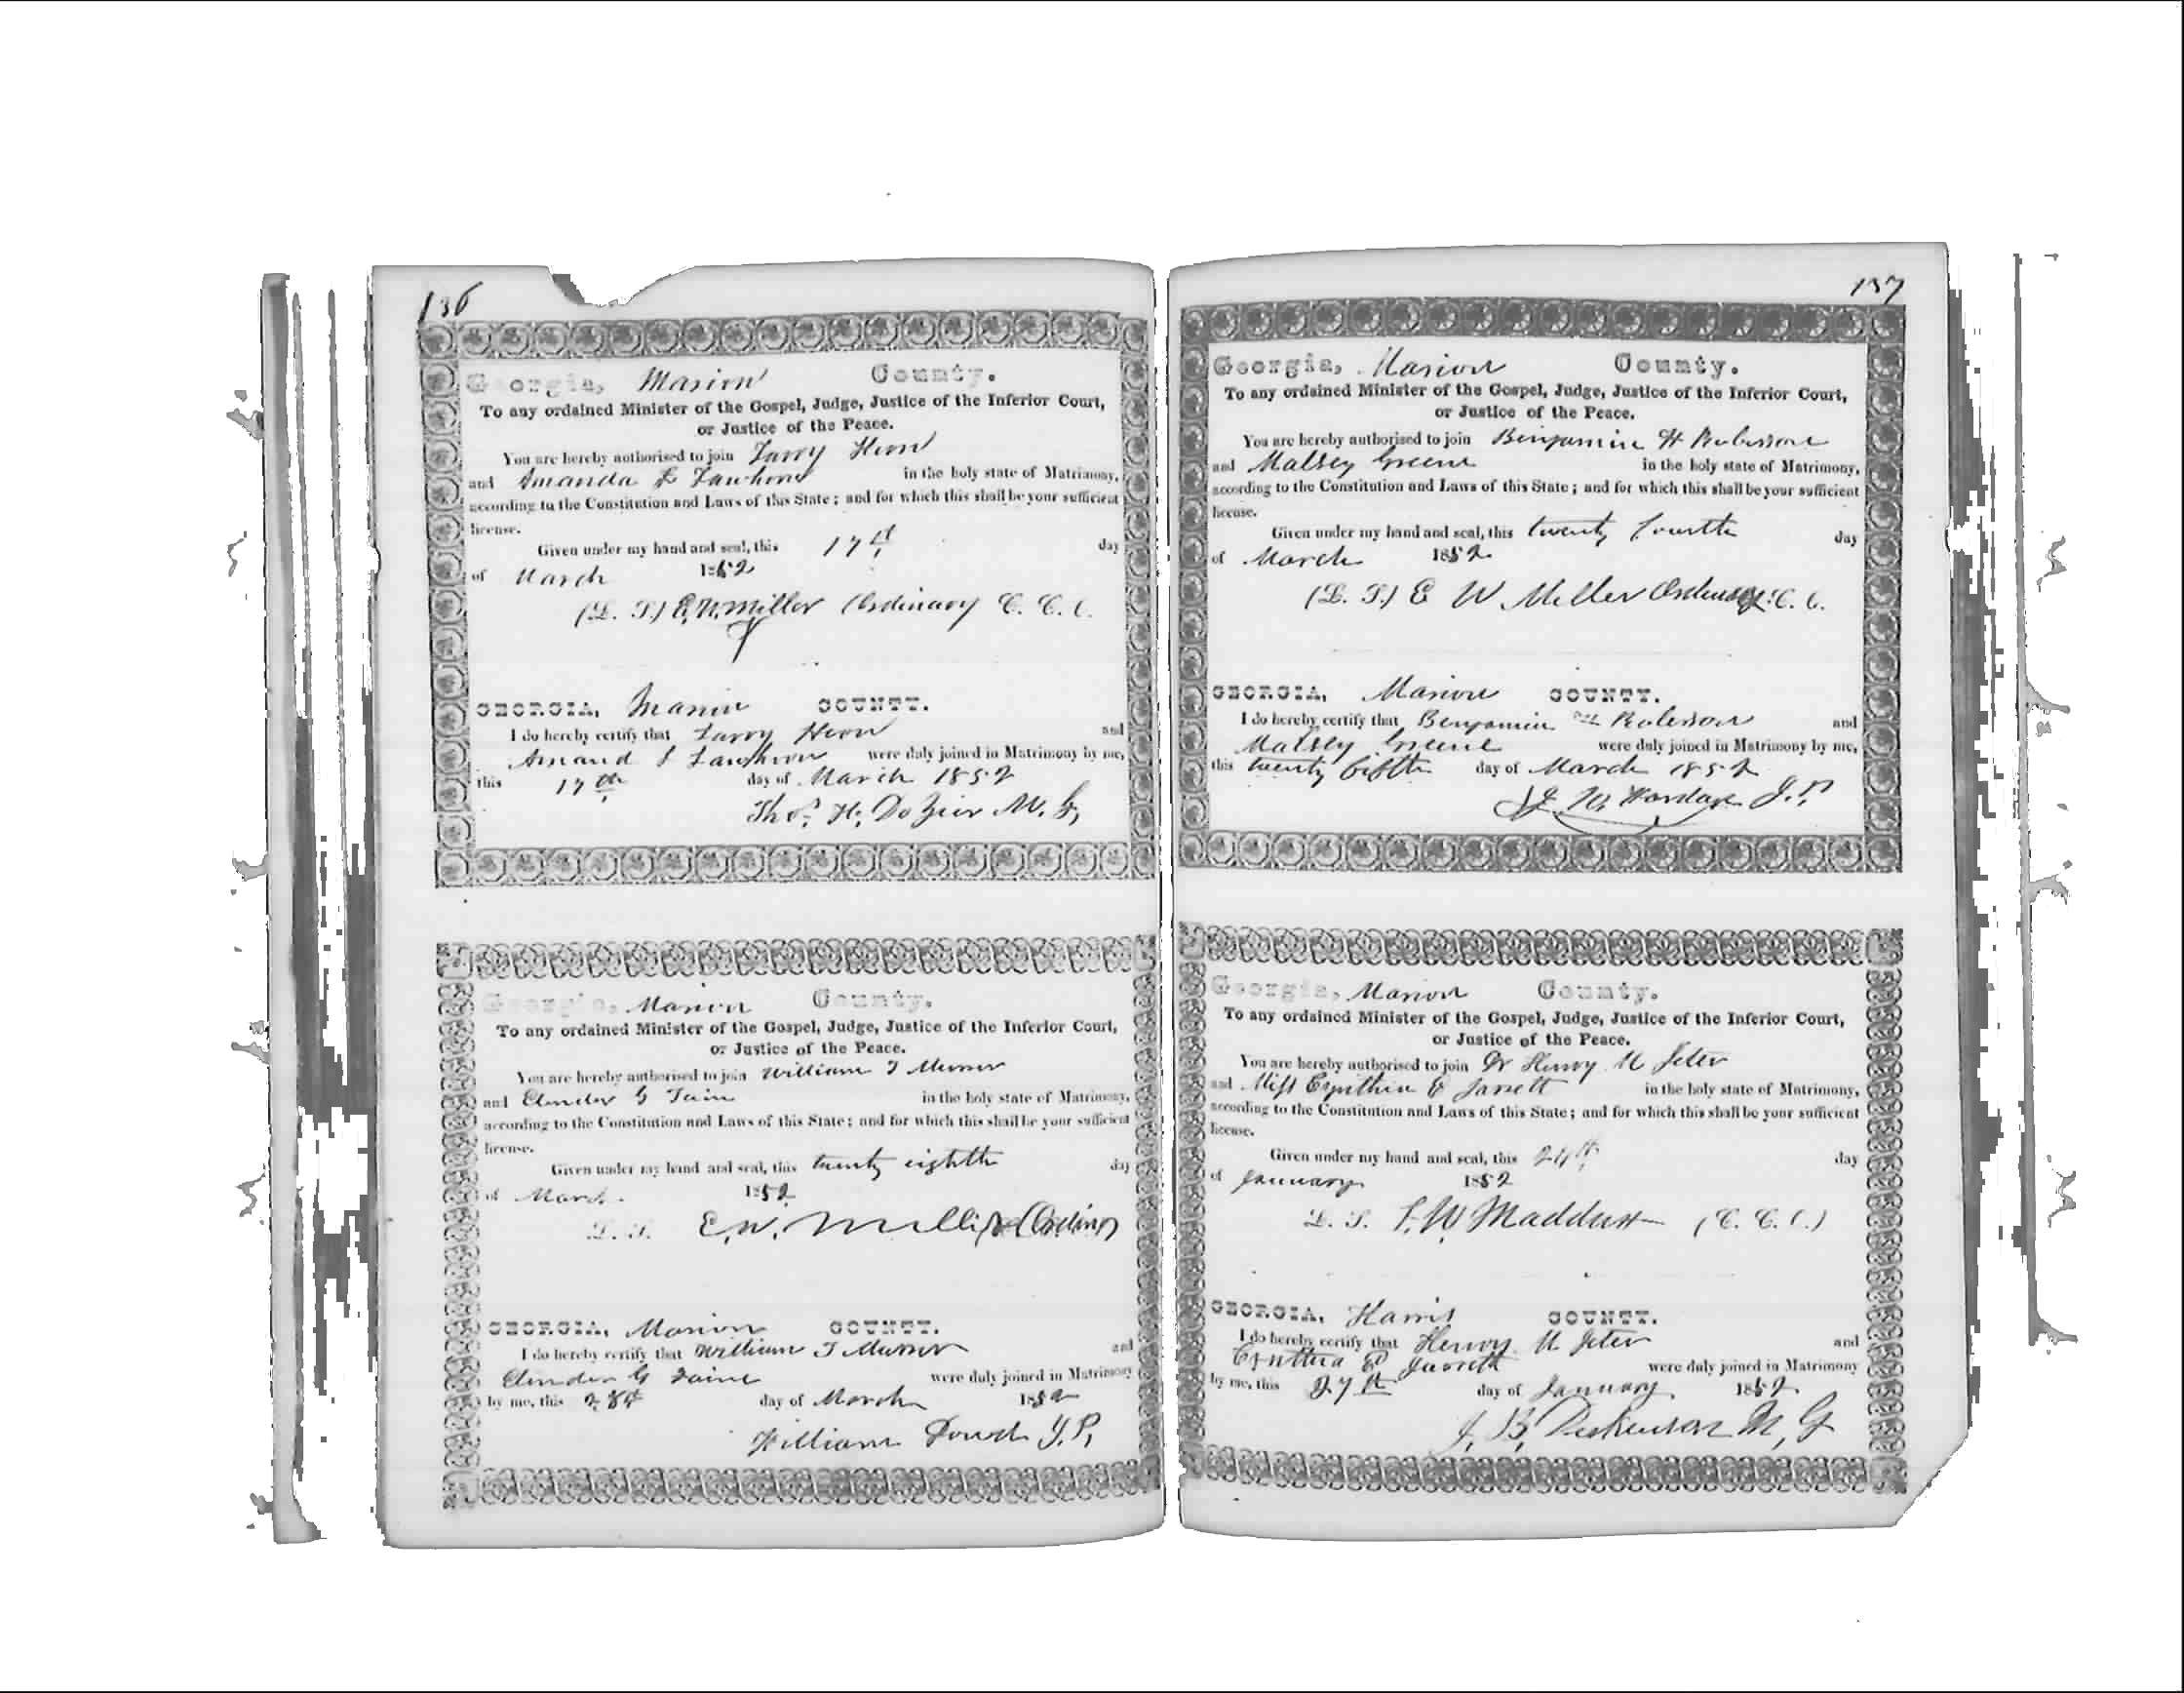 136
Georgia, Marion County.
To any ordained Minister of the Gospel, Judge, Justice of the Inferior Court,
or Justice of the Peace.
You are hereby authorised to join
and Amanda in the holy state of Matrimony,
according to the Constitution and Laws of this State; and for which this shall be your sufficient
license.
Given under my hand and seal, this 17th day
of March 1852
(L. S.) E. W. Miller Ordinary C. C. C.
GEORGIA, Marion COUNTY.
I do hereby certify that and
Amand were duly joined in Matrimony by me,
this 17th day of March 1852
Thos. H. Dozier M. G,
Georgia, Marion County.
To any ordained Minister of the Gospel, Judge, Justice of the Inferior Court,
or Justice of the Peace.
You are hereby authorised to join William
and G in the holy state of Matrimony,
according to the Constitution and Laws of this State; and for which this shall be your sufficient
license.
Given under my hand and seal, this twenty eighth day
of March 1852
L. S. E. W.
GEORGIA, Marion COUNTY.
I do hereby certify that William and
G were duly joined in Matrimony
by me, this 28th day of March 1852
William J. P.
137
Georgia, Marion County.
To any ordained Minister of the Gospel, Judge, Justice of the Inferior Court,
or Justice of the Peace.
You are hereby authorised to join Benjamin H
and Malsey Greene in the holy state of Matrimony,
according to the Constitution and Laws of this State; and for which this shall be your sufficient
license.
Given under my hand and seal, this twenty fourth day
of March 1852
(L. S.) E W Miller C. C.
GEORGIA, Marion COUNTY.
I do hereby certify that Benjamin and
Malsey Greene were duly joined in Matrimony by me,
this twenty fifth day of March 1852
J. P.
Georgia, Marion County.
To any ordained Minister of the Gospel, Judge, Justice of the Inferior Court,
or Justice of the Peace.
You are hereby authorised to join Dr Henry M Jeter
and Miss Cynthia E Jarrett in the holy state of Matrimony,
according to the Constitution and Laws of this State; and for which this shall be your sufficient
license.
Given under my hand and seal, this 24th day
of January 1852
L. S. W Maddux (C. C. C.)
GEORGIA, Harris COUNTY.
I do hereby certify that Henry M Jeter and
Cynthia were duly joined in Matrimony
by me, this 27th day of January 1852
J. B. M, G